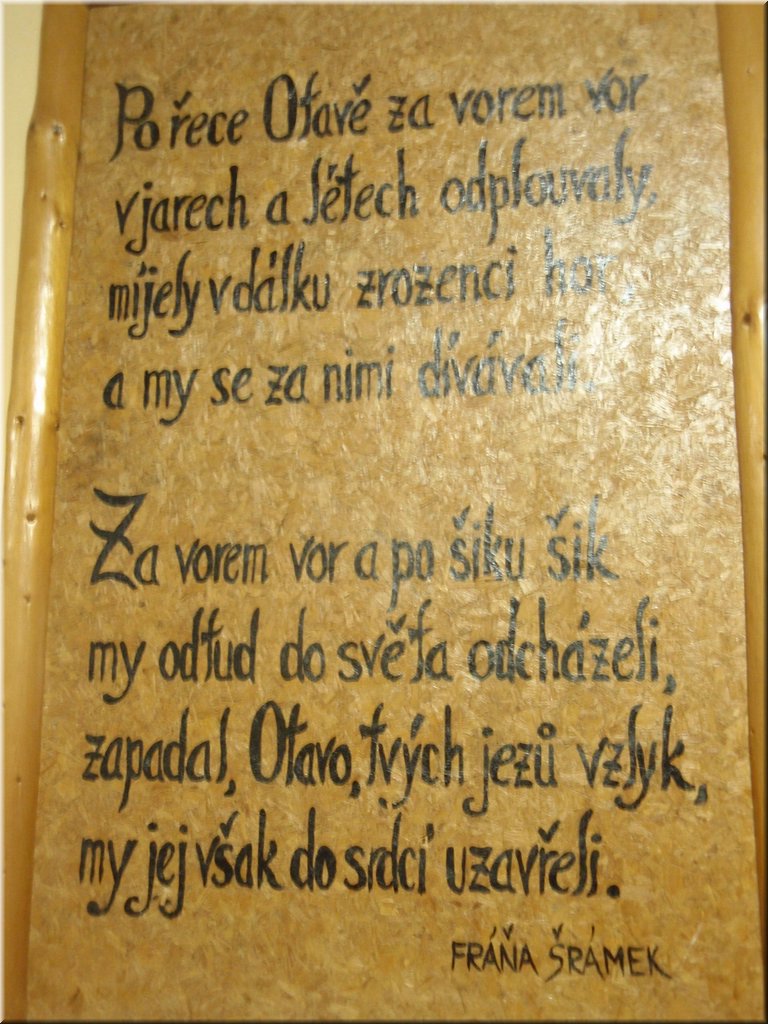 Po řece Otavě za vorem vor
v jarech a létech odplouvaly,
míjely v dálku zrozenci hor,
a my se za nimi dívávali.
Za vorem vor a po šiku šik
my odtud do světa odcházeli,
zapadal, Otavo, tvých jezů vzlyk,
my jej však do srdcí uzavřeli.
FRÁŇA ŠRÁMEK